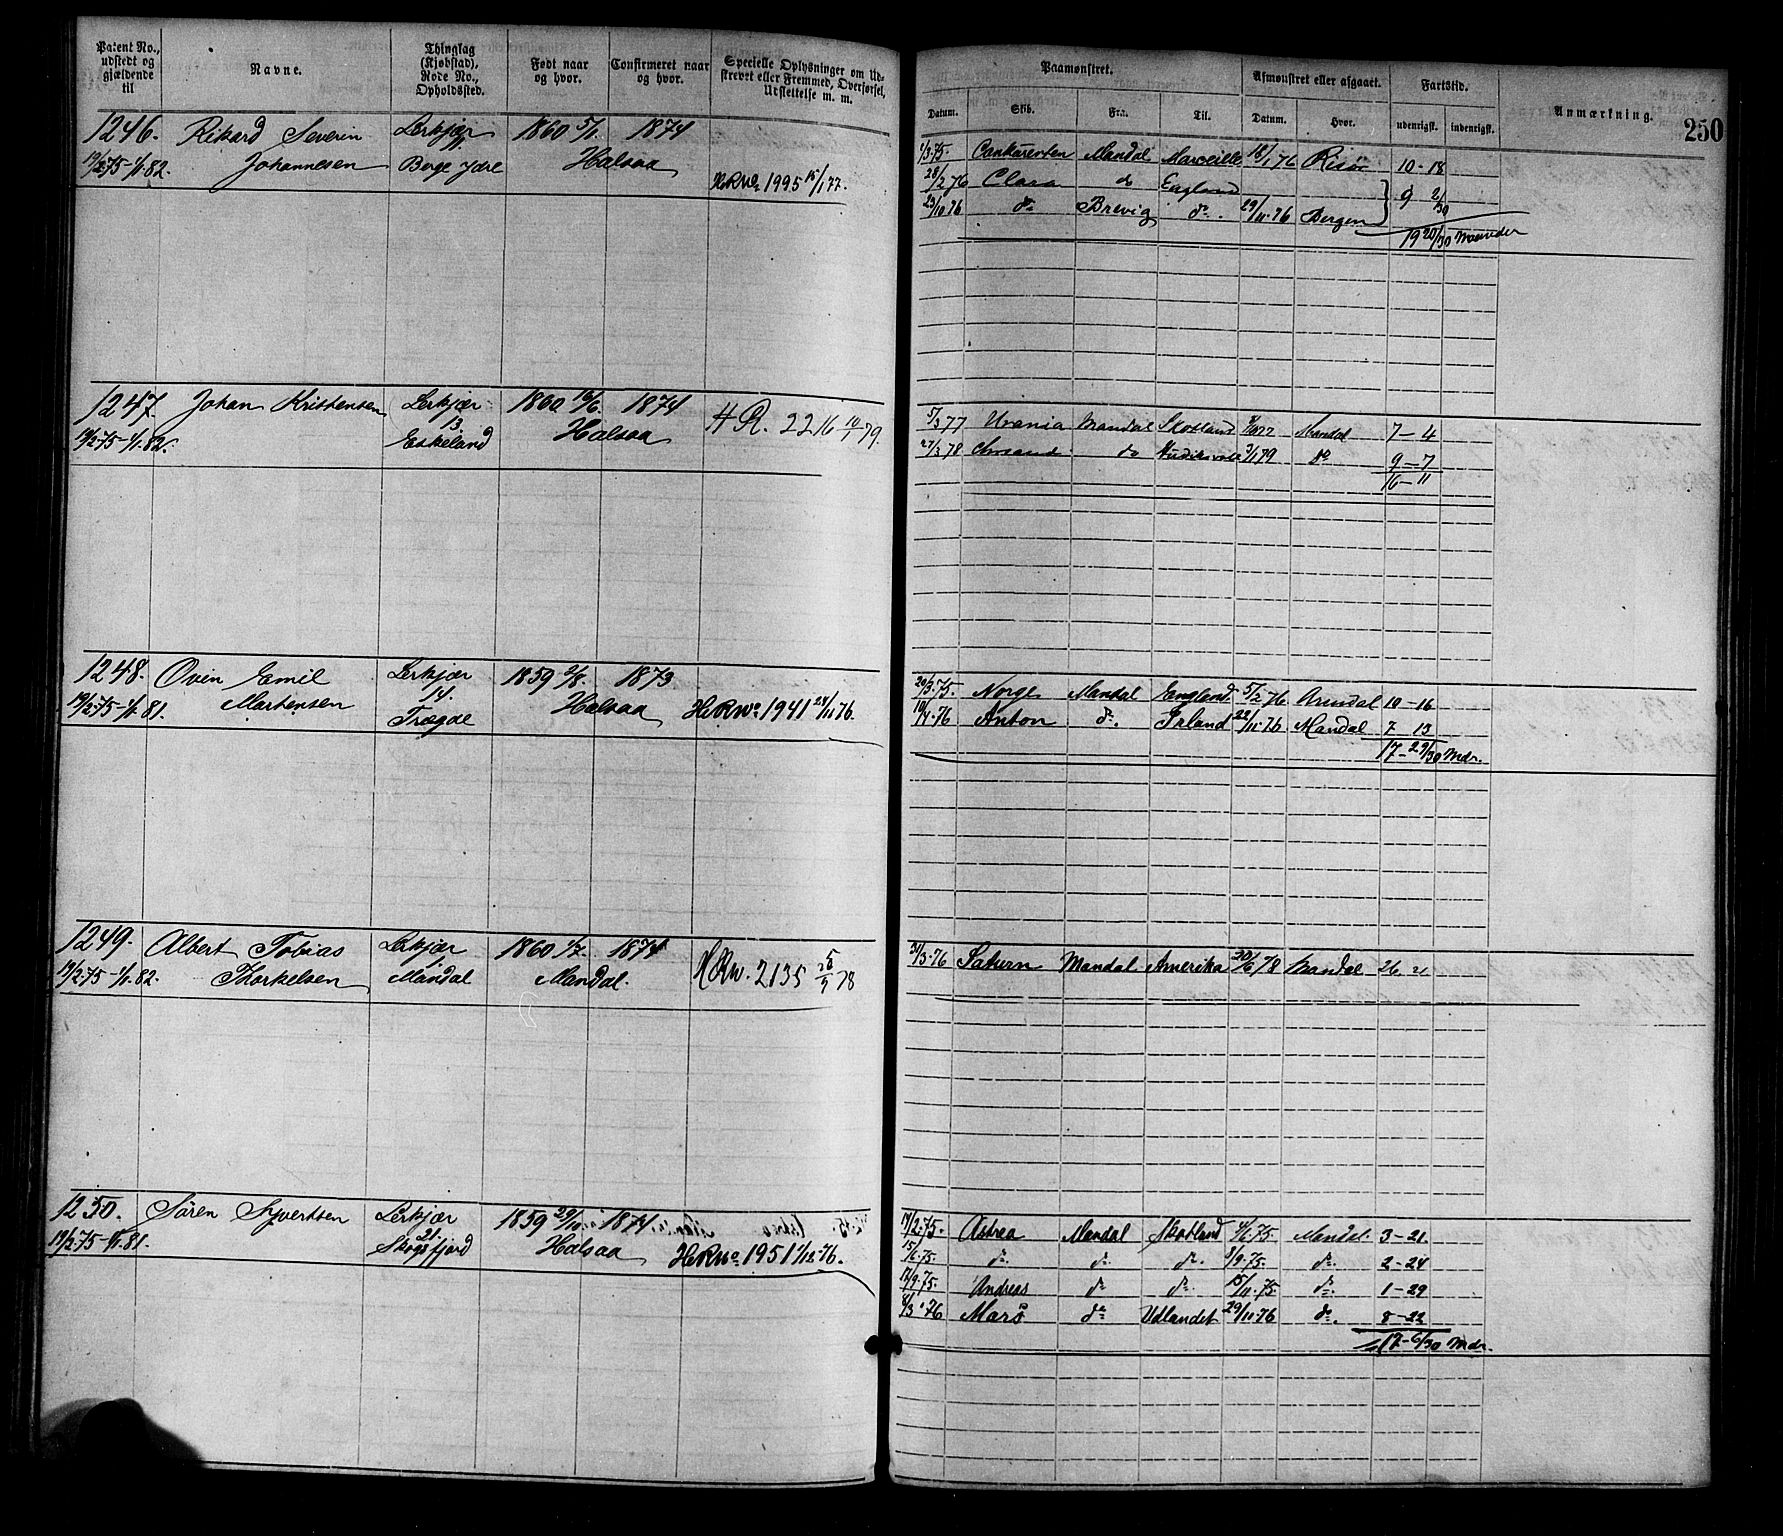 Patent No., udstedt og gjældende til
Navne.
Thinglag (Kjøbstad), Rode No., Opholdssted.
Født naar og hvor.
Confirmeret naar og hvor.
Specielle Oplysninger om Udskrevet eller Fremmed, Overførsel, Udslettelse m. m.
Paamønstret.
Afmønstret eller afgaaet.
Fartstid.
Anmærkning.
250
Datum. Skib. Fra. Til. Datum. Hvor. udenrigst. indenrigst.
1246. Rikard Severin Lerkjær 1860 5/1 1874
19/2 75 - 1/1 82. Johannesen Boge ydre Halsaa H.R.No 1995 15/1 77.
1/3 75. Conkurenten Mandal Marseille 18/1 76 Risør 10 - 18
28/2 76 Clara do England 9 2/30
23/10 76 do Brevig do. 29/11.76 Bergen
19 20/30 Maaneder
1247. Johan Kristensen Lerkjær 1860 16/6. 1874
13
19/2.75 - 1/1.82. Eskeland Halsaa H R. 2216 79.
5/3 77 Urania Mandal Skotland Mandal 7 - 4
27/3 78 do 3/1 79 do 9 - 7
16 - 11
1248. Ovin Emil Lerkjær 1859 2/8. 1873
14.
19/2.75 - 1/1.81. Martensen Trægde Halsaa H.R.No 1941 28/11 76.
20/3.75. Norge Mandal England. 5/2 76 Arendal 10 - 16
10/4.76 Anton do. Irland 22/11.76 Mandal 7 13
17 - 29/30 Mdr.
1249. Albert Tobias Lerkjær 1860 1/7. 1874
1
19/2.75 - 1/1.82. Thorkelsen Mandal Mandal. H R No. 2135 78
31/3.76 Saturn Mandal Amerika 20/6 78 Mandal 26 21
1250. Søren Syvertsen Lerkjær 1859 29/10 1874
21.
19/2.75 - 1/1.81. Skogsfjord Halsaa H.R.No. 1951 1/12.76.
19/2.75. Astrea Mandal Skotland 4/6.75. Mandal. 3 - 21
15/6.75. do. do. do. 8/9.75. do. 2 - 24
17/9.75. Andreas do do. 15/11.75. do. 1 - 29
8/3.76 Mars do Udlandet 29/11.76 do. 8 - 22
17 - 6/30 Mdr.